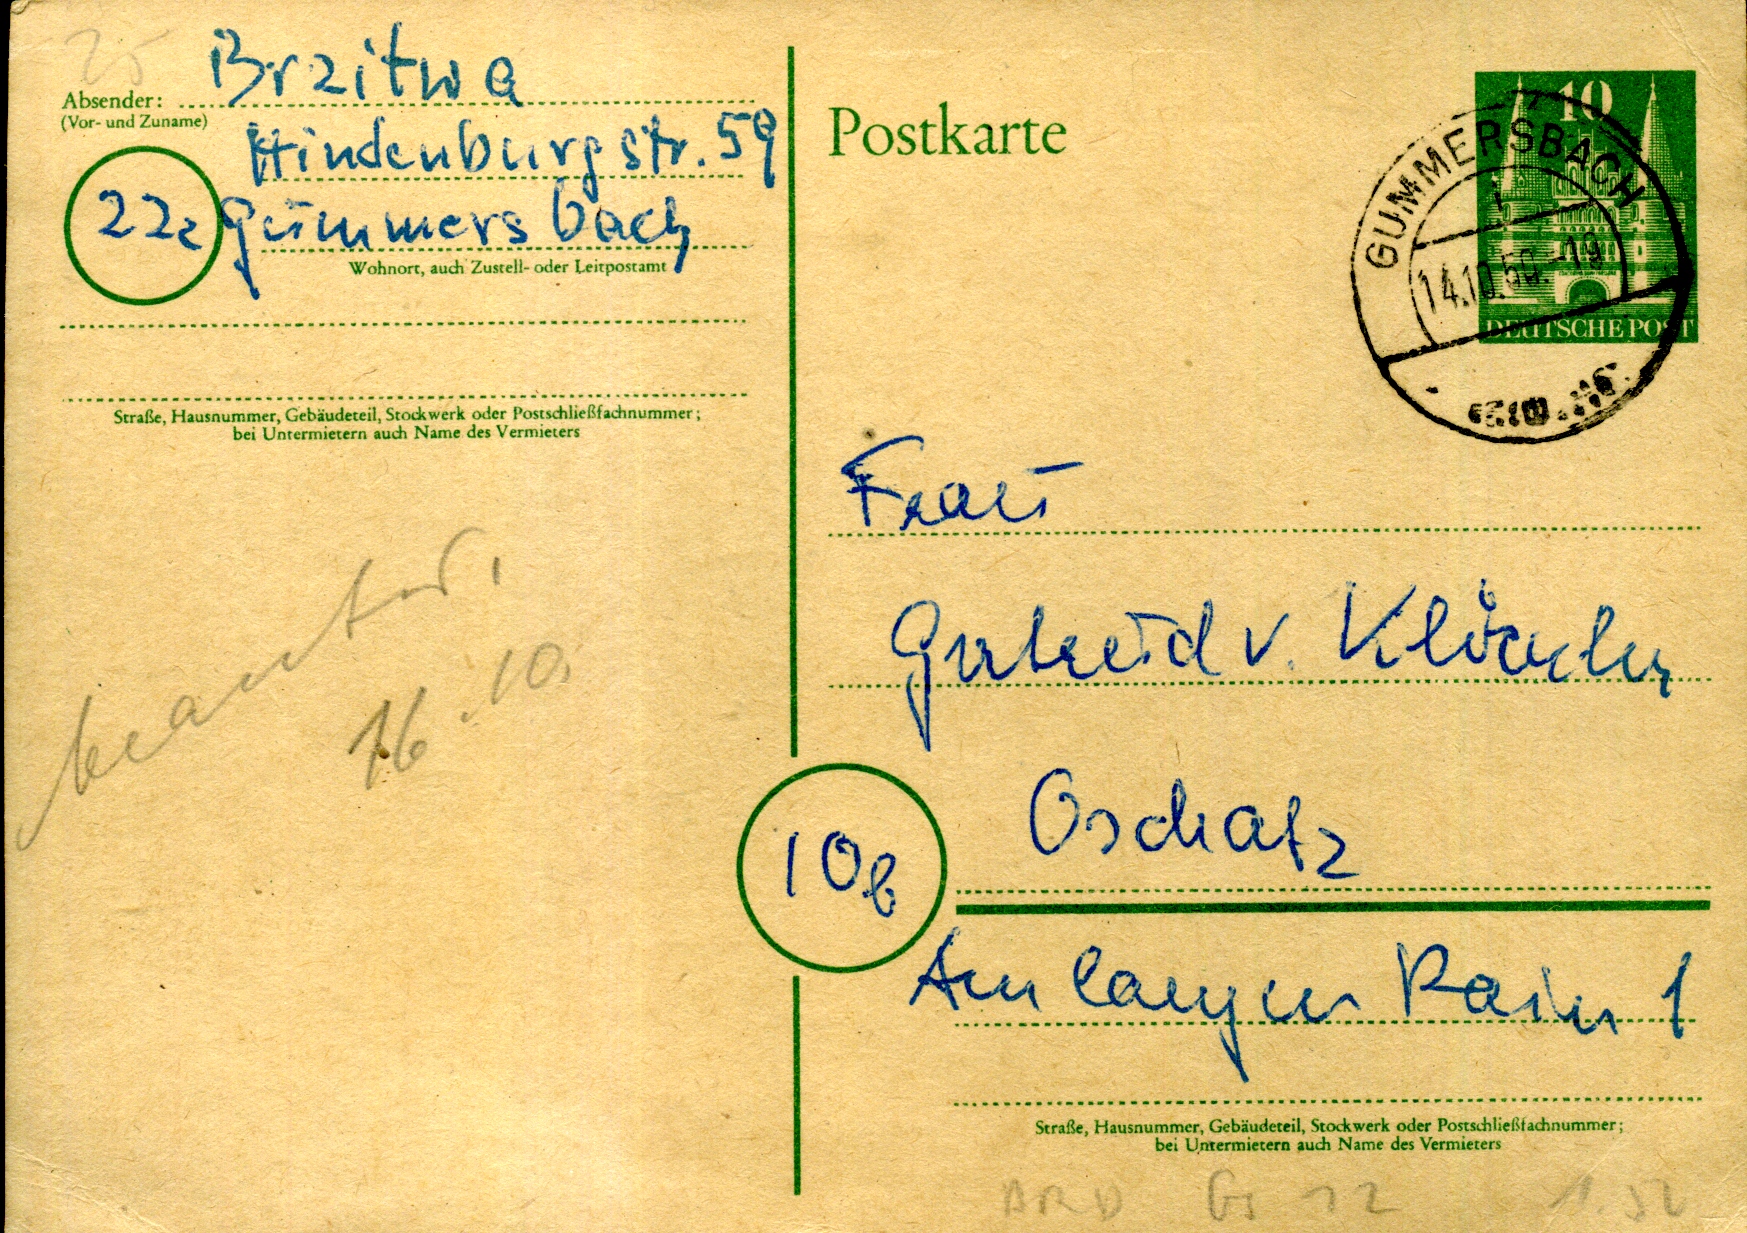 25
Brzitwa
Absender:
(Vor- und Zuname)
Hindenburgstr. 59
22c Gummersbach
Wohnort, auch Zustell- oder Leitpostamt
Straße, Hausnummer, Gebäudeteil, Stockwerk oder Postschließfachnummer;
bei Untermietern auch Name des Vermieters
16.10.
Postkarte
10
DEUTSCHE POST
GUMMERSBACH
1
14.10.50.-19
Frau
v.
Oschatz
10b
Am langen Rain 1
Straße, Hausnummer, Gebäudeteil, Stockwerk oder Postschließfachnummer;
bei Untermietern auch Name des Vermieters
BRD GS 12 1.50